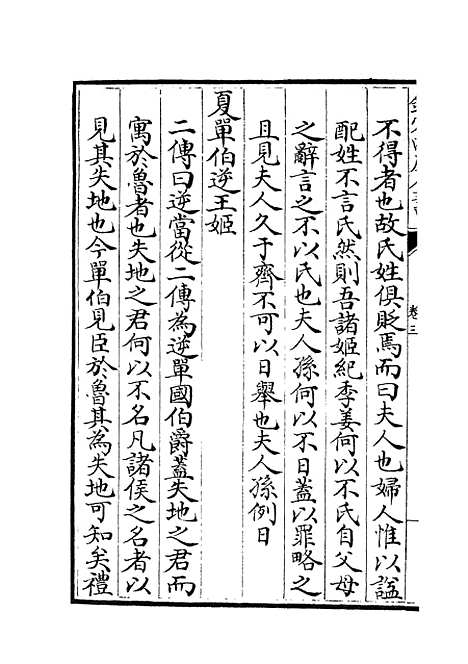 卷三
不得者也故氏姓俱貶焉而曰夫人也婦人惟以謚
配姓不言氏然則吾諸姬紀季姜何以不氏自父母
之辭言之不以氏也夫人孫何以不日蓋以罪略之
且見夫人久于齊不可以日舉也夫人孫例日
夏單伯逆王姬
二傳曰逆當從二傳為逆單國伯爵蓋失地之君而
寓於魯者也失地之君何以不名凡諸侯之名者以
見其失地也今單伯見臣於魯其為失地可知矣禮